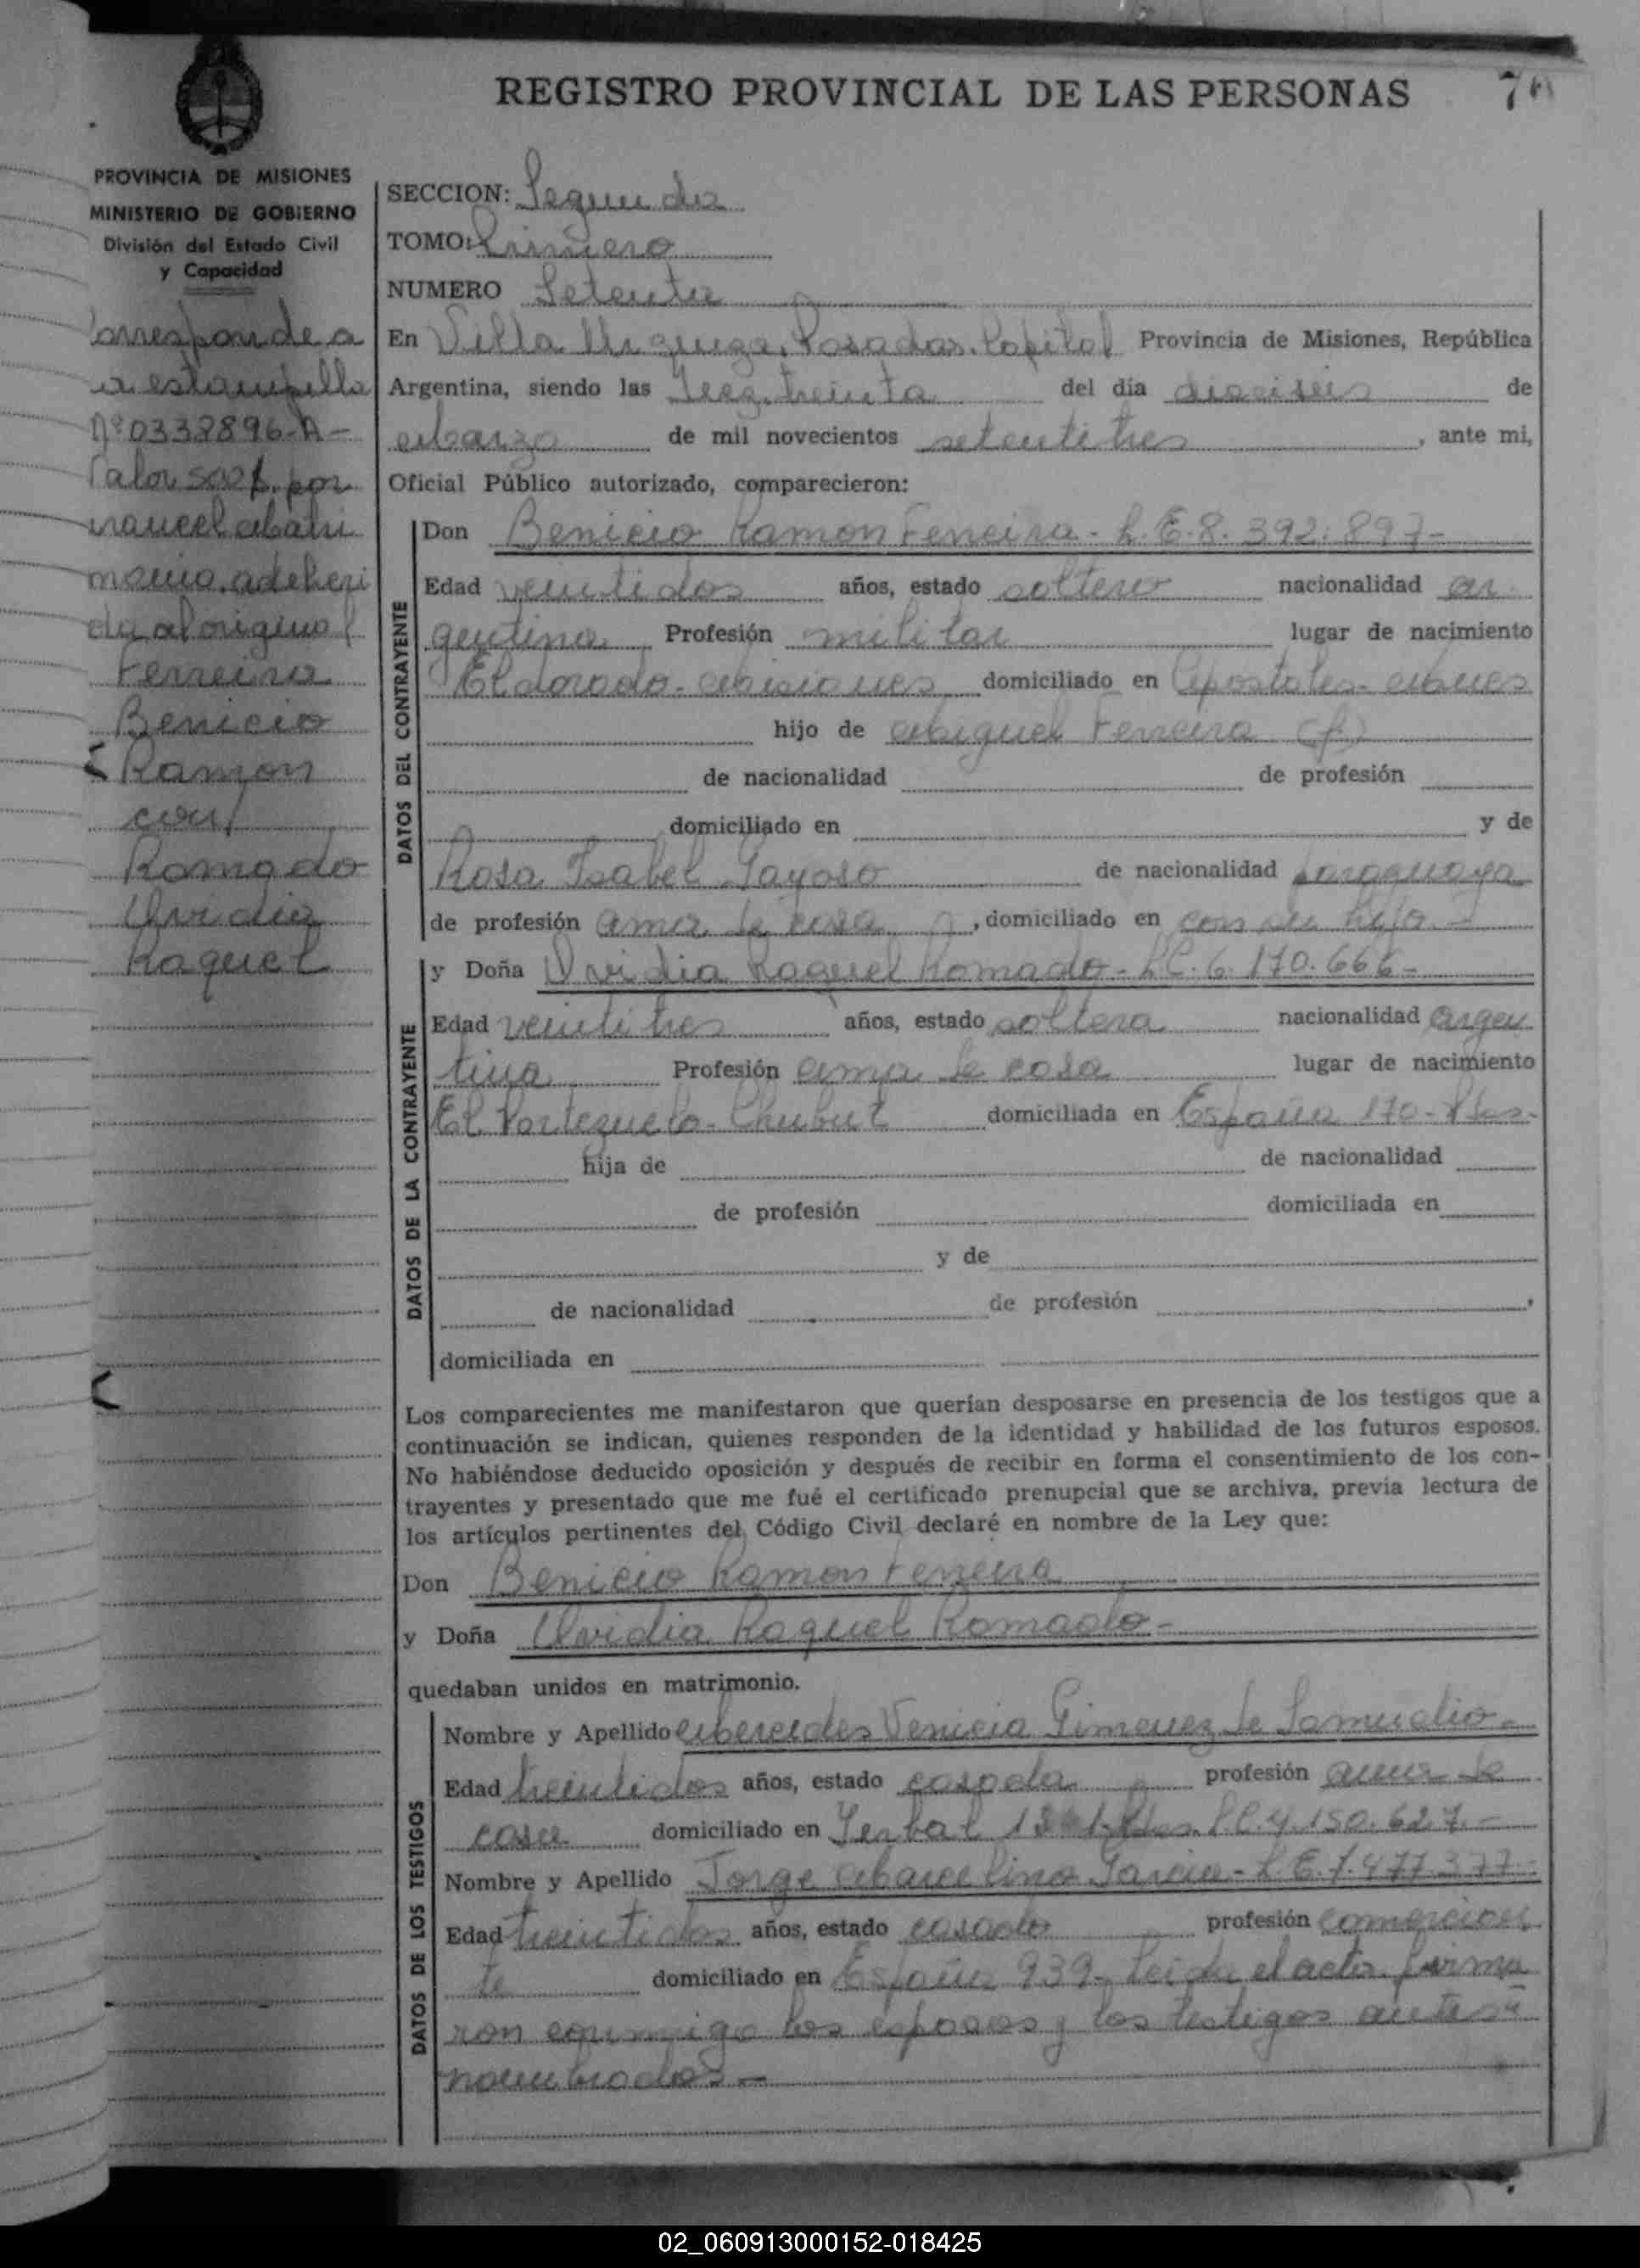 REGISTRO PROVINCIAL DE LAS PERSONAS
PROVINCIA DE MISIONES
MINISTERIO DE GOBIERNO
División del Estado Civil
y Capacidad
Corresponde a
a estampilla
Nº 0338896-A-
Valor 500$ por
arancel Matri
monio. adheri
da al original
Ferreira
Benicio
Ramon
con/
Romado
Ovidia
Raquel
SECCION: Segunda
TOMO: Primero
NUMERO Setenta
En Villa Urquiza. Posadas. Capital Provincia de Misiones, República
Argentina, siendo las diez. treinta del día dieciseis de
Marzo de mil novecientos setentitres, ante mi,
Oficial Público autorizado, comparecieron:
DATOS DEL CONTRAYENTE
Don Benicio Ramon Ferreira - L.E. 8.392.897-
Edad veintidos años, estado soltero nacionalidad ar
gentina Profesión militar lugar de nacimiento
Eldorado - Misiones domiciliado en Apostoles - Mnes
hijo de Miguel Ferreira (f)
de nacionalidad de profesión
domiciliado en y de
Rosa Isabel Gayoso de nacionalidad paraguaya
de profesión ama de casa, domiciliado en con su hijo. -
DATOS DE LA CONTRAYENTE
y Doña Ovidia Raquel Romado - L.C. 6.170.666-
Edad veintitres años, estado soltera nacionalidad argen
tina Profesión ama de casa lugar de nacimiento
El Portezuelo - Chubut domiciliada en España 170 - Pdas.
hija de de nacionalidad
de profesión domiciliada en
y de
de nacionalidad de profesión
domiciliada en
Los comparecientes me manifestaron que querían desposarse en presencia de los testigos que a
continuación se indican, quienes responden de la identidad y habilidad de los futuros esposos.
No habiéndose deducido oposición y después de recibir en forma el consentimiento de los con-
trayentes y presentado que me fué el certificado prenupcial que se archiva, previa lectura de
los artículos pertinentes del Código Civil declaré en nombre de la Ley que:
Don Benicio Ramon Ferreira
y Doña Ovidia Raquel Romado-
quedaban unidos en matrimonio.
DATOS DE LOS TESTIGOS
Nombre y Apellido Mercedes Venicia Gimenez de Samudio-
Edad treintidos años, estado casada profesión ama de
casa domiciliado en Yerbal L.C. 4.150.627.-
Nombre y Apellido Jorge Marcelino Garcia - L.E. 7.477.377-
Edad treintidos años, estado casado profesión comercian
te domiciliado en España 939- Leida el acta firma
ron conmigo los esposos y los testigos antes
nombrados -
02_060913000152-018425